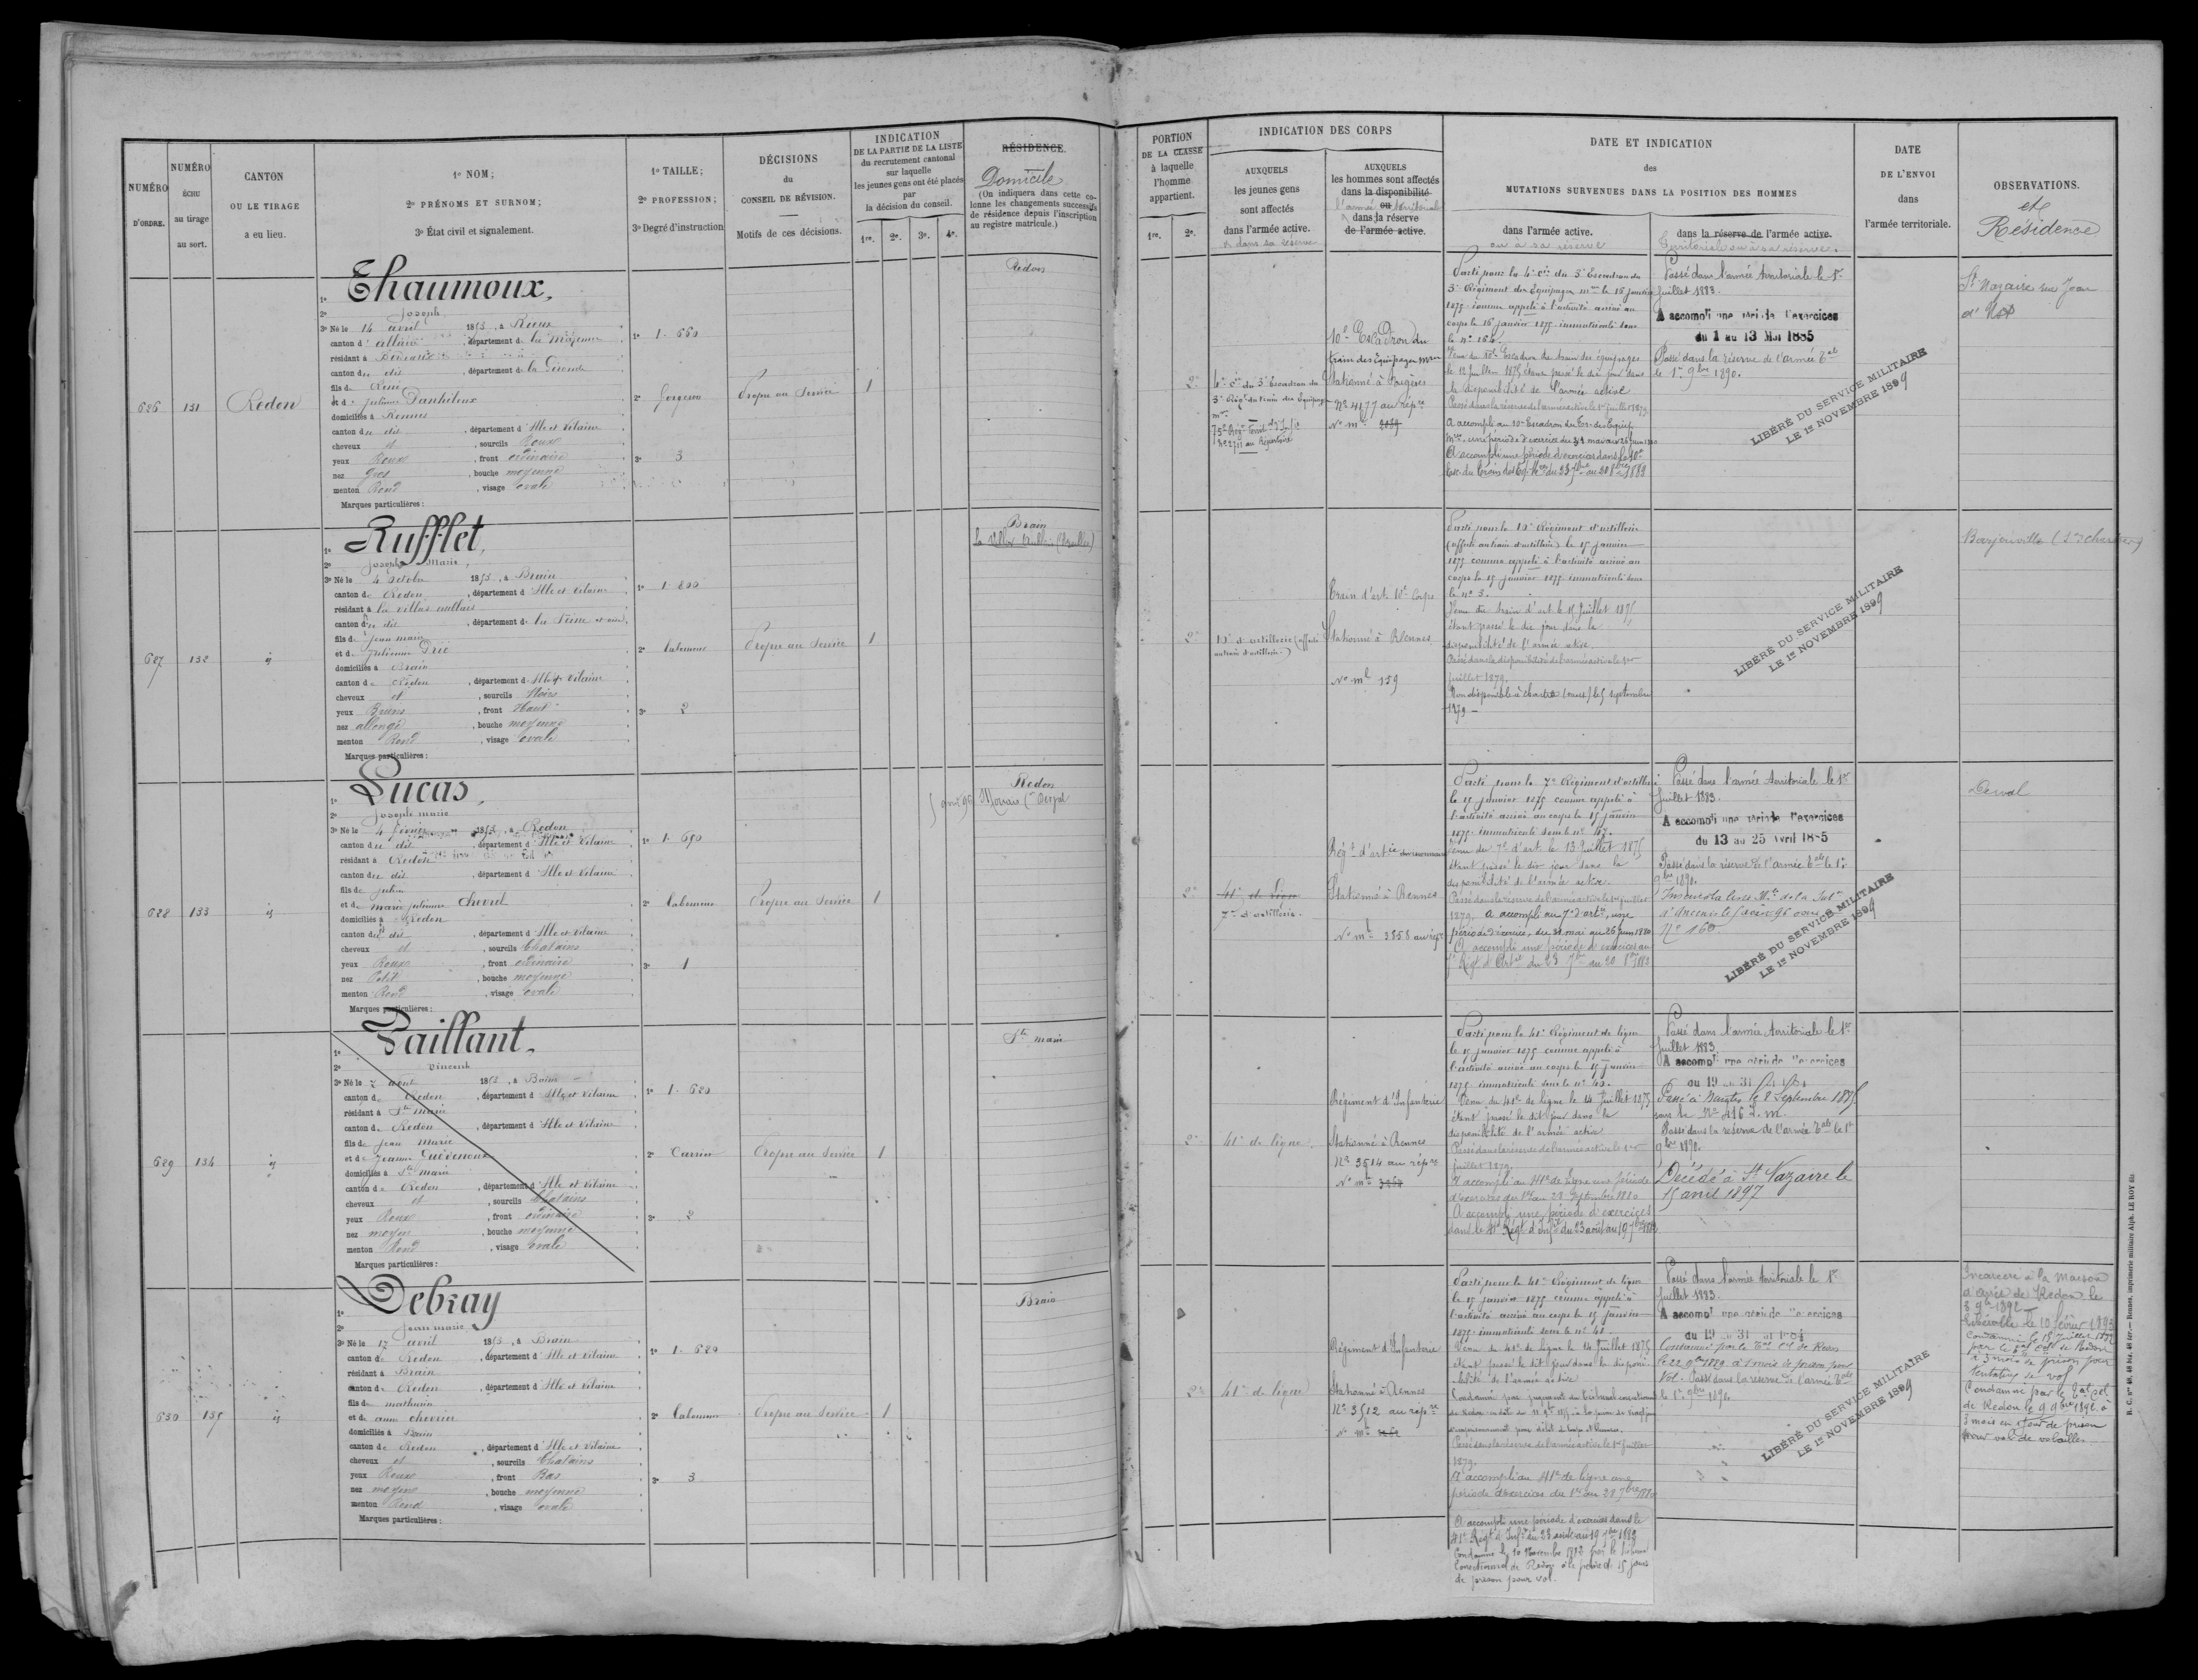 NUMÉRO
D'ORDRE.
NUMÉRO
ÉCHU
au tirage
au sort.
CANTON
OU LE TIRAGE
a eu lieu.
1º NOM;
2º PRÉNOMS ET SURNOM;
3º État civil et signalement.
1º TAILLE;
2º PROFESSION;
3º Degré d'instruction
DÉCISIONS
du
CONSEIL DE RÉVISION.
Motifs de ces décisions.
INDICATION
DE LA PARTIE DE LA LISTE
du recrutement cantonal
sur laquelle
les jeunes gens ont été placés
par
la décision du conseil.
1re. 2e. 3e. 4e.
RÉSIDENCE
Domicile
(On indiquera dans cette co-
lonne les changements successifs
de résidence depuis l'inscription
au registre matricule.)
PORTION
DE LA CLASSE
à laquelle
l'homme
appartient.
1re. 2e.
INDICATION DES CORPS
AUXQUELS
les jeunes gens
sont affectés
dans l'armée active.
& dans sa réserve
AUXQUELS
les hommes sont affectés
dans la disponibilité
l'armée ou territoriale
dans la réserve
de l'armée active.
DATE ET INDICATION
des
MUTATIONS SURVENUES DANS LA POSITION DES HOMMES
dans l'armée active.
ou à sa réserve
dans la réserve de l'armée active.
Territoriale ou à sa réserve.
DATE
DE L'ENVOI
dans
l'armée territoriale.
OBSERVATIONS.
et
Résidence
626
131
Redon
1º Thaumoux,
2º Joseph
3º Né le 14 avril 1853, à Rieux
canton d'allaire, département de la Morbihan
résidant à Bordeaux
canton du dit, département de la Gironde
fils de René
et de Julienne Danheloux
domiciliés à Rennes
canton du dit, département d'Ille et Vilaine
cheveux et, sourcils Roux
yeux Roux, front ordinaire
nez gros, bouche moyenne
menton Rond, visage ovale
Marques particulières :
1º 1. 660
2º forgeron
3º 3
Propre au Service
1
Redon
2e
4e Cie du 3e Escadron du
3e Régt du train des Equipages
mres
10e Escadron du
train des Equipages mres
Stationné à Fougères
Nº 4177 au répre
Nº mle 2089
Parti pour la 4e Cie du 3e Escadron du
3e Régiment des Equipages mres le 16 janvier
1875 comme appelé à l'activité arrivé au
corps le 16 janvier 1875 immatriculé sous
le nº 164.
Venu du 10e Escadron du train des équipages
le 12 juillet 1875 étant passé le dit jour dans
la disponibilité de l'armée active
Passé dans la réserve de l'armée active le 1er juillet 1879
A accompli une période d'exercices dans le 10e
Passé dans l'armée territoriale le 1er
Juillet 1883.
A accompli une période d'exercices
du 1 au 13 Mai 1885
Passé dans la réserve de l'armée Tale
le 1er 9bre 1890.
LIBÉRÉ DU SERVICE MILITAIRE
LE 1er NOVEMBRE 1899
St Nazaire rue Jean
d'
627
132
id
1º Rufflet,
2º Joseph Marie,
3º Né le 4 octobre 1853, à Brain
canton de Redon, département d'Ille et Vilaine
résidant à la villas aublais
canton du dit, département de la Seine et oise
fils de Jean marie
et de Julienne Drié
domiciliés à Brain
canton de Redon, département d'Ille et Vilaine
cheveux et, sourcils Noirs
yeux Bruns, front Haut
nez allongé, bouche moyenne
menton Rond, visage ovale
Marques particulières :
1º 1. 800
2º laboureur
3º 2
Propre au Service
1
Brain
2e
10e d'artillerie (affecté
au train d'artillerie.)
Train d'art. 10e Corps
Stationné à Rennes
Nº mle 159
Parti pour le 10e Régiment d'artillerie
(affecté au train d'artillerie) le 15 janvier
1875 comme appelé à l'activité arrivé au
corps le 15 janvier 1875 immatriculé sous
le nº 3.
Venu du train d'art. le 15 Juillet 1875
étant passé le dit jour dans la
disponibilité de l'armée active.
Passé dans la disponibilité de l'armée active le 1er
juillet 1879.
Non disponible à chartres (ouest) le 5 septembre
1879
LIBÉRÉ DU SERVICE MILITAIRE
LE 1er NOVEMBRE 1899
628
133
id
1º Lucas,
2º Joseph marie
3º Né le 4 février 1853, à Redon
canton du dit, département d'Ille et Vilaine
résidant à Redon
canton du dit, département d'Ille et Vilaine
fils de Julien
et de marie julienne Chevrel
domiciliés à Redon
canton du dit, département d'Ille et Vilaine
cheveux et, sourcils Chatains
yeux Roux, front ordinaire
nez Petit, bouche moyenne
menton Rond, visage ovale
Marques particulières :
1º 1. 690
2º laboureur
3º 1
Propre au Service
1
Redon
2e
41e de ligne
7e d'artillerie.
Régt d'artie
Stationné à Rennes
Nº mle 3858 au répre
Parti pour le 7e Régiment d'artillerie
le 15 janvier 1875 comme appelé à
l'activité arrivé au corps le 15 janvier
1875 immatriculé sous le nº 47.
Venu du 7e d'art. le 13 Juillet 1875
étant passé le dit jour dans la
disponibilité de l'armée active.
Passé dans la réserve de l'armée active le 1er juillet
1879. A accompli au 7e d'artie, une
période d'exercice, du 30 mai au 26 juin 1880
A accompli une période d'exercices au
7e Régt d'Artie du 23 7bre au 20 8bre 1882
Passé dans l'armée territoriale le 1er
Juillet 1883.
A accompli une période d'exercices
du 13 au 25 avril 1885
Passé dans la réserve de l'armée Tale le 1er
9bre 1890.
Nº 160
LIBÉRÉ DU SERVICE MILITAIRE
LE 1er NOVEMBRE 1899
Derval
629
134
id
1º Paillant,
2º Vincent
3º Né le 7 aout 1853, à Bains
canton de Redon, département d'Ille et Vilaine
résidant à Ste marie
canton de Redon, département d'Ille et Vilaine
fils de Jean Marie
et de Jeanne Guéveneux
domiciliés à Ste marie
canton de Redon, département d'Ille et Vilaine
cheveux et, sourcils Chatains
yeux Roux, front ordinaire
nez moyen, bouche moyenne
menton Rond, visage ovale
Marques particulières :
1º 1. 620
2º Carrier
3º 2
Propre au Service
1
Ste marie
2e
41e de ligne
Régiment d'Infanterie
Stationné à Rennes
Nº 3514 au répre
Parti pour le 41e Régiment de ligne
le 15 janvier 1875 comme appelé à
l'activité arrivé au corps le 15 janvier
1875 immatriculé sous le nº 40.
Venu du 41e de ligne le 14 Juillet 1875
étant passé le dit jour dans la
disponibilité de l'armée active
Passé dans la réserve de l'armée active le 1er
juillet 1879.
A accompli au 41e de ligne une période
d'exercices du 1er au 28 Septembre 1880
A accompli une période d'exercices
dans le 41e Régt d'Infie du 23 août au 19 7bre 1882
Passé dans l'armée territoriale le 1er
Juillet 1883.
A accompli une période d'exercices
du 19 au 31
Passé à Nantes le 8 Septembre 1885
sous le Nº 416
Passé dans la réserve de l'armée Tale le 1er
9bre 1890.
Décédé à St Nazaire le
15 avril 1897
630
135
id
1º Debray
2º Jean marie
3º Né le 17 avril 1853, à Brain
canton de Redon, département d'Ille et Vilaine
résidant à Brain
canton de Redon, département d'Ille et Vilaine
fils de mathurin
et de anne chevrier
domiciliés à Brain
canton de Redon, département d'Ille et Vilaine
cheveux et, sourcils Chatains
yeux Roux, front Bas
nez moyen, bouche moyenne
menton Rond, visage ovale
Marques particulières :
1º 1. 620
2º laboureur
3º 3
Propre au Service
1
Brain
2e
41e de ligne
Régiment d'Infanterie
Stationné à Rennes
Nº 3512 au répre
Parti pour le 41e Régiment de ligne
le 15 janvier 1875 comme appelé à
l'activité arrivé au corps le 15 janvier
1875 immatriculé sous le nº 41
Venu du 41e de ligne le 14 Juillet 1875
étant passé le dit jour dans la disponi-
bilité de l'armée active
Passé dans la réserve de l'armée active le 1er juillet
1879.
A accompli au 41e de ligne une
période d'exercices du 1er au 28 7bre 1880
A accompli une période d'exercices dans le
41e Régt d'Infie du 23 août au 19 7bre 1882
Condamné le 10 Novembre 1882 par le tribunal
Correctionnel de Redon à la peine de 15 jours
de prison pour vol.
Passé dans l'armée territoriale le 1er
Juillet 1883.
A accompli une période d'exercices
du 19 au 31
le 22 9bre 1889 à 1 mois de prison pour
vol. Passé dans la réserve de l'armée Tale
le 1er 9bre 1890.
LIBÉRÉ DU SERVICE MILITAIRE
LE 1er NOVEMBRE 1899
Incarcéré à la Maison
d'arrêt de Redon le
8 9bre 1892
le 10 février 1893
à 3 mois de prison pour
tentative de vol
Condamné par le Tal Cel
de Redon le 9 9bre 1892 à
3 mois et 1 jour de prison
pour vol de volailles
R. C. nº 48, 48 bis, 48 ter. — Rennes, imprimerie militaire Alph. LE ROY fils